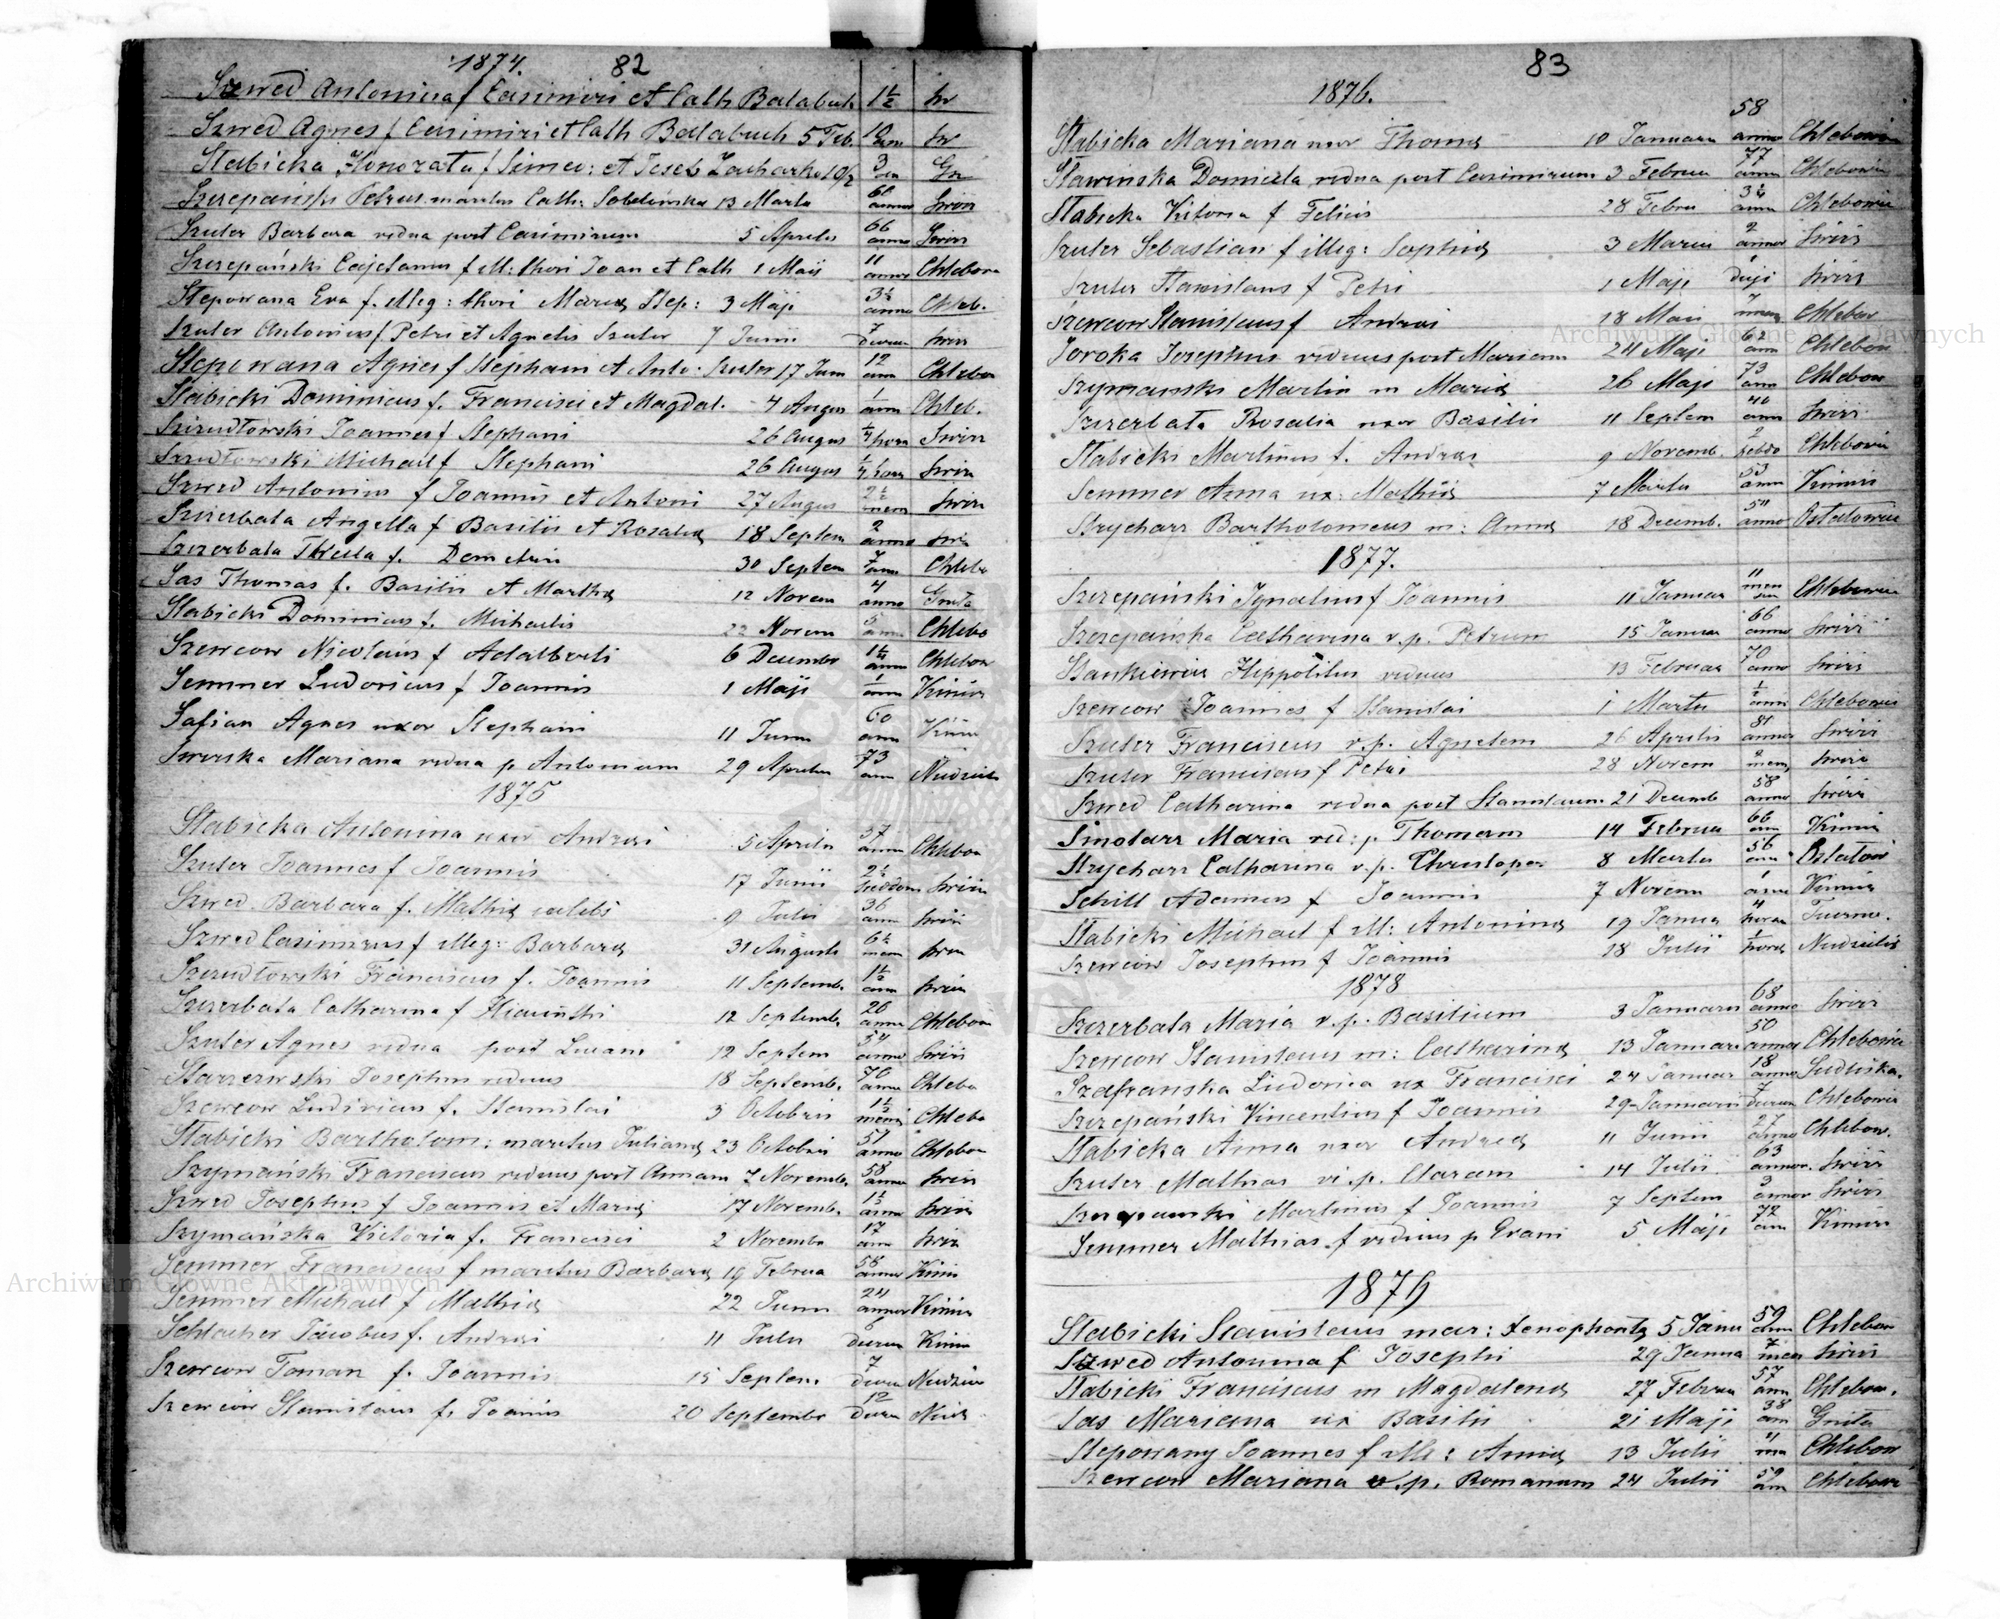 1874. 82
Szwed Antonina f Casimiri et Cath Balabuch 1½ Sw
Szwed Agnes f Casimiri et Cath Balabuch 5 Feb. 10 ann Sw
Stabicka Honorata f Simeo: et Josef Zacharko 3
Szczepański Petrus maritus Cath: Sobolewska 13 Martii anno Swirz
Szuter Barbara vidua post Casimirum 5 Aprilis 66 anno Swirz
Szczepański Cajetanus f ill: thori Joan et Cath 1 Maji 11 annor Chlebow
Stepowana Eva f. illeg: thori Maria Step: 3 Maji 3½ anno Chleb.
Szuter Antonius f Petri et Agnetis Szuter 7 Junii 7 dierum Swirz
Stepowana Agnes f Stephani et Anto: Szuter 17 Juni 12 ann Chlebow
Stabicki Dominicus f. Francisci et Magdal. 4 Augus 1 ann Chleb.
Szczudłowski Joannes f Stephani 26 Augus hora Swirz
Szczudłowski Michael f Stephani 26 Augus hora Swirz
Szwed Antonius f Joannis et Antoni 27 Augus 2½ mens Swirz
Szczerbata Angella f Basilii et Rosalia 18 Septem 2 anno Swir
Szczerbata Thecla f. Demetrii 30 Septem 7 ann Chlebo
Sas Thomas f. Basilii et Martha 12 Novem 4 anno Gniła
Stabicki Dominicus f. Michaelis 22 Novem 5 ann Chlebo
Szewcow Nicolaus f Adalberti 6 Decembr 1½ anno Chlebow
Semmer Ludovicus f Joannis 1 Maji 1 ann Kimirz
Safian Agnes uxor Stephani 11 Junii 60 ann Kimir
Swirska Mariana vidua p Antonium 29 Aprilis 73 ann Niedzieli
1875
Stabicka Antonina uxor Andreae 5 Aprilis 37 anno Chlebow
Szuter Joannes f Joannis 17 Junii 2½ hebdom Swirz
Szwed Barbara f. Mathia celebs 9 Julii 36 ann Swirz
Szwed Casimirus f illeg: Barbara 31 Augusti 6½ mens Swirz
Szczudłowski Franciscus f. Joannis 11 Septemb. 1½ ann Swirz
Szczerbata Catharina f 12 Septemb. 26 anno Chlebow
Szuter Agnes vidua post Lucam 12 Septem 54 anno Swirz
Starzewski Josephus viduus 18 Septemb. 70 anno Chlebo
Szewcow Ludovicus f. Stanislai 3 Octobris 1½ mens Chlebo
Stabicki Bartholom: maritus Juliana 23 Octobris 51 anno Chlebow
Szymański Franciscus viduus post Annam 7 Novemb. 58 annor Swirz
Szwed Josephus f Joannis et Maria 17 Novemb. 1½ anno Swirz
Szymańska Victoria f. Francisci 2 Novembr 17 ann Swirz
Semmer Franciscus f maritus Barbara 19 Februa 56 annor Kimir
Semmer Michael f Mathia 22 Junii 24 annor Kimirz
Schlacher Jacobus f. Andreae 11 Julii 6 dierum Kimir
Szewcow Toman f. Joannis 15 Septem. 7 dierum Niedziel
Szewcow Stanislaus f. Joannis 20 Septembr 12 dieru Niedz
83
1876.
Stabicka Mariana uxor Thoma 10 Januarii 58 annor Chlebowic
Sławinska Domicela vidua post Casimirum 3 Februa 77 annor Chlebowic
Stabicka Victoria f Felicis 28 Febru 3½ anno Chlebowic
Szuter Sebastian f illeg: Sophia 3 Marcii 2 annor Swirz
Szuter Stanislaus f Petri 1 Maji 1 diei Swirz
Szewcow Stanislaus f Andreae 18 Maii 7 mens Chlebow
Soroka Josephus viduus post Mariam 24 Maji 62 ann Chlebow
Szymanski Martin m Maria 26 Maji 73 ann Chlebow
Szczerbata Rosalia uxor Basilii 11 Septem 40 ann Swirz
Stabicki Martinus f. Andreae 9 Novemb. 2 hebdo Chlebowic
Semmer Anna ux: Mathia 7 Martii 53 ann Kimirz
Strycharz Bartholomeus m: Anna 18 Decemb. 54 anno Ostalowic
1877.
Szczepański Ignatius f Joannis 11 Januar 11 men Chlebowic
Szczepańska Catharina v.p. Petrum 15 Januar 66 anno Swirz
Stankiewicz Hippolitus viduus 13 Februar 70 anno Swirz
Szewcow Joannes f Stanislai 1 Martii ½ ann Chlebowic
Szuter Franciscus v.p. Agnetem 26 Aprilis 81 annor Swirz
Szuter Franciscus f Petri 28 Novem 2 mens Swirz
Szwed Catharina vidua post Stanislaum 21 Decemb 58 annor Swirz
Smolarz Maria vid: p Thomam 14 Februa 66 ann Kimir
Strycharz Catharina v.p. Christopor 8 Martii 56 ann Ostałow
Schill Adamus f Joannis 7 Novem 1 ann Kimirz
Stabicki Michael f ill: Antonina 19 Janua 4 horae
Szewcow Josephus f Joannis 18 Julii 1 hora Niedzielis
1878
Szczerbata Maria v.p. Basilium 3 Januarii 68 anno Swirz
Szewcow Stanislaus m: Catharina 13 Januarii 50 annor Chlebowic
Szafranska Ludovica ux Francisci 24 Januar 18 anno
Szczepański Vincentius f Joannis 29 Januarii 7 dierum Chlebowic
Stabicka Anna uxor Andrea 11 Junii 27 anno Chlebow.
Szuter Mathias vi.p. Claram 14 Julii 63 annor. Swirz
Szczepanski Martinus f Joannis 7 Septem 3 annor Swirz
Semmer Mathias f viduus p Evam 5 Maji 72 ann Kimirz
1879
Stabicki Stanislaus mar: Xenophonta 5 Janu 59 ann Chlebow
Szwed Antonina f Josephi 29 Janua 7 mens Swirz
Stabicki Franciscus m Magdalena 27 Februa 57 ann Chlebow.
Sas Mariana ux Basilii 21 Maji 38 ann Gniła
Stepowany Joannes f ill: Anna 13 Julii Chlebow
Szewcow Mariana v.p. Romanum 24 Julii 59 ann Chlebowic
Archiwum Główne Akt Dawnych
Archiwum Główne Akt Dawnych